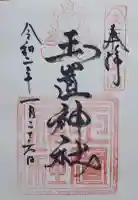 奉拝
玉置神社
令和二年一月二十六日